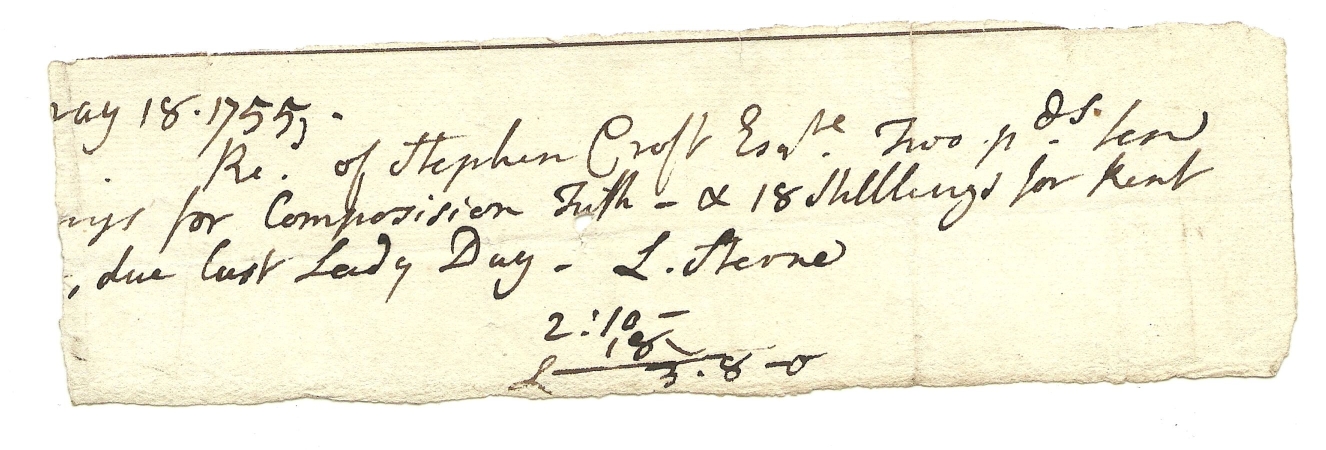 May 18. 1755,.
Re. of Stephen Croft Esqre. Two pds. ten
ings for Composision Tith – & 18 Shilllings for Rent
, due last Lady Day – L. Sterne
2:10 –
18
L 3.8–0